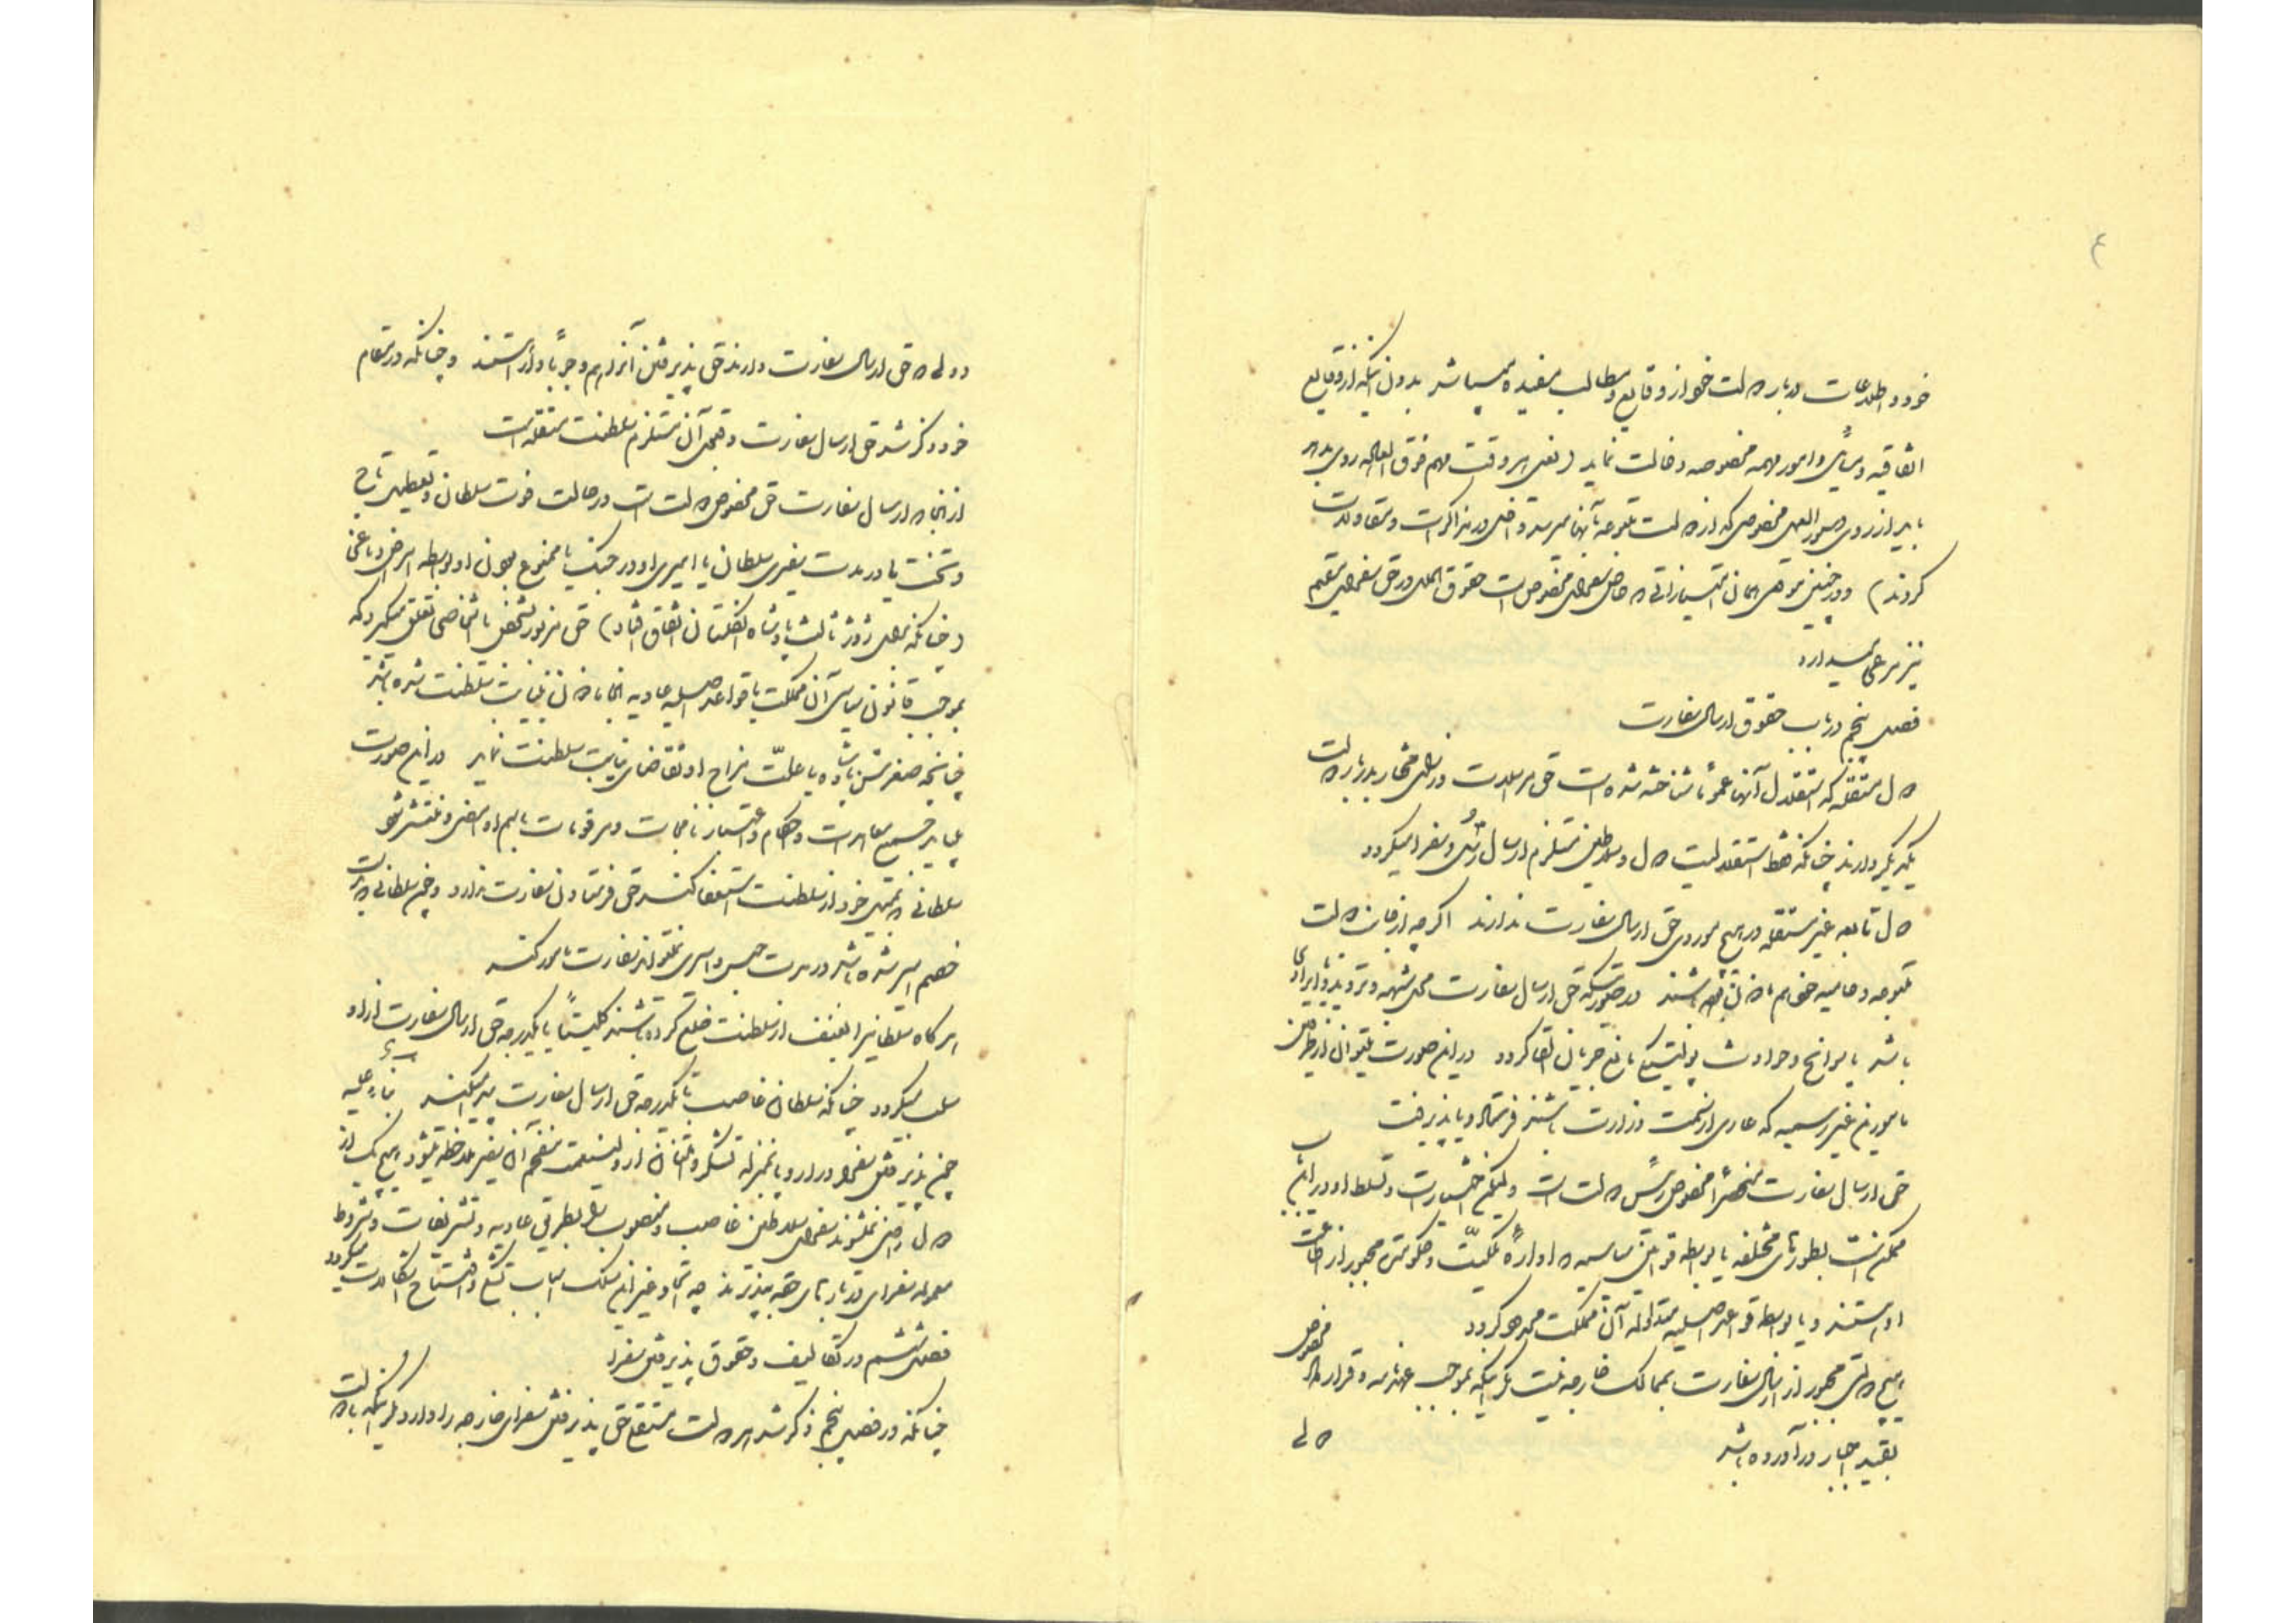 ۴
خود و اطلاعات درباره دولت خود از وقایع و مطالب مفیده میباشد بدون اینکه از وقایع
اتفاقیه و سیاسی و امور مهمه مخصوصه دخالت نماید (یعنی هر وقت مهم فوق العاده روی بدهد
باید از روی دستورالعمل مخصوص که از دولت متبوعه بآنها میرسد داخل در مذاکرات و مقاولات
کردند) و در چنین موقعی همان امتیازاتی که خاص سفرای مخصوص است حقوق الملل در حق سفرای مقیم
نیز مرعی میدارد
فصل پنجم در باب حقوق ارسال سفارت
دول مستقله که استقلال آنها عموماً شناخته شده است حق مراسلات و وزرای مختار بدربار دولت
یکدیگر دارند چنانکه حفظ استقلالیت دول و سلاطین مستلزم ارسال رسل و سفرا میگردد
دول تابعه غیر مستقله در هیچ موردی حق ارسال سفارت ندارند اگرچه از جانب دولت
متبوعه و حامیه خود هم ماذون باشند در صورتیکه حق ارسال سفارت محل شبهه و تردید و ایرادی
باشد یا سوانح و حوادث پولتیکی مانع جریان آنها گردد در این صورت میتوان از طرفین
مامورین غیر رسمیه که عاری از سمت وزارت باشند فرستاد و یا پذیرفت
حق ارسال سفارت منحصراً مخصوص رئیس دولت است ولیکن اختیارات و تسلط او در این باب
ممکن است بطورهای مختلفه یا بواسطه قوانین سیاسیه که اداره ملکیت و حکومتش مجبور از اطاعت
او هستند و یا بواسطه قواعد اصلیه متداوله آن مملکت محدود گردد
هیچ دولتی مجبور از ارسال سفارت بممالک خارجه نیست مگر اینکه بموجب عهدنامه و قرارداد مخصوص
بقید اجبار درآورده باشد
دولی
دولی که حق ارسال سفارت دارند حق پذیرفتن آنرا هم وجوباً دارا هستند و چنانکه در مقام
خود ذکر شد حق ارسال سفارت و قبول آن مستلزم سلطنت مستقله است
از آنجا که ارسال سفارت حق مخصوص دولت است در حالت فوت سلطان و تعطیل تاج
و تخت یا در مدت صغری سلطان یا اسیری او در جنگ یا ممنوع بودن او بواسطه امراض دماغی
(چنانکه برای ژورژ ثالث پادشاه انگلستان اتفاق افتاد) حق مزبور بشخص یا اشخاصی تعلق میگیرد که
بموجب قانون سیاسی آن مملکت یا قواعد اصلیه عادیه آنجا ماذون نیابت سلطنت شده باشند
چنانچه صغر سن پادشاه یا علت مزاج او تقاضای نیابت سلطنت نماید در این صورت
باید جمیع معاهدات و احکام و اعتبارنامجات و مرقومات باسم او امضا و منتشر شود
سلطانی که بمیل خود از سلطنت استعفا کند حق فرستادن سفارت ندارد و چنین سلطانی که بدست
خصم اسیر شده باشد در مدت حبس و اسیری نمیتواند سفارت مامور کند
هرگاه سلطانیرا بعنف از سلطنت خلع کرده باشند کلیتاً یا بیکدرجه حق ارسال سفارت از او
سلب میگردد چنانکه سلطان غاصب تا بیکدرجه حق ارسال سفارت پیدا میکند بناء علیه
چون پذیرفتن سفرا در دارد و یا بمنزله تشکر و امتنان از ولینعمت مفخم آن سفیر ملاحظه میشود هیچ یک از
دول راضی نمیشوند سفرای سلاطین غاصب و مغصوب را بطریق عادیه و تشریفات و شروط
معموله سفرای دربارهای حقه بپذیرند چه اتخاذ غیر این مسلک اسباب تشکی و افتتاح مقالات میگردد
فصل ششم در تکالیف و حقوق پذیرفتن سفرا
چنانکه در فصل پنجم ذکر شد هر دولت مستقلی حق پذیرفتن سفرای خارجه را دارد مگر اینکه با دولت